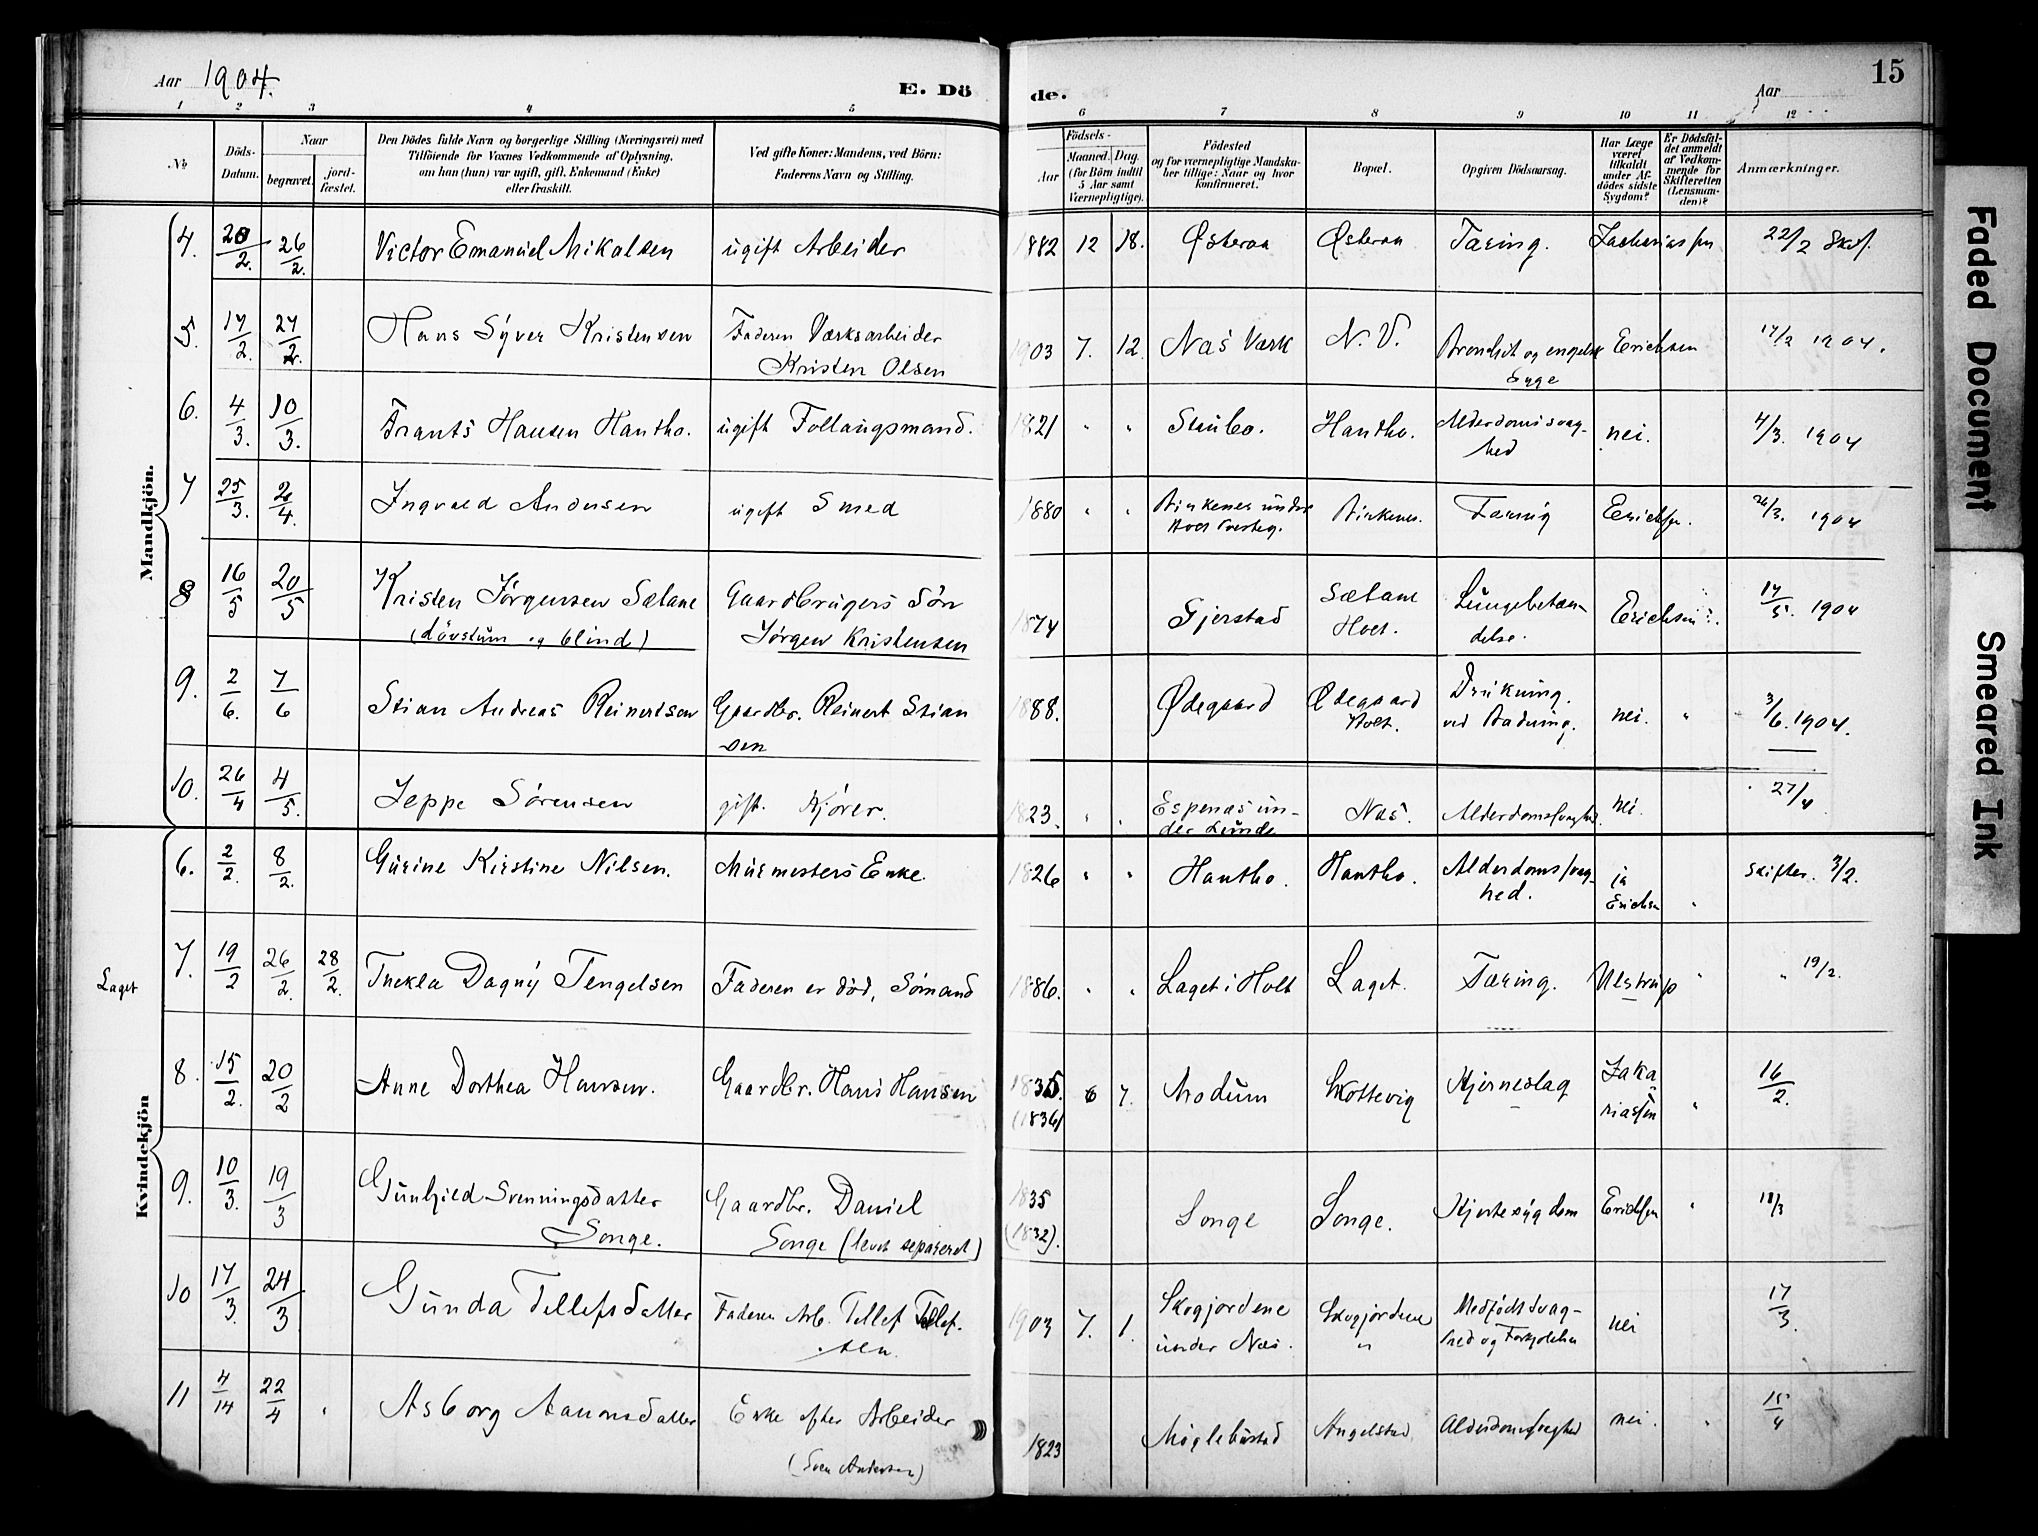 Aar 1904.
E. Dö
de.
Aar
15
1 2 3 4 5 6 7 8 9 10 11 12
No
Döds-
Datum.
Naar
begravet.
jord-
fæstet.
Den Dödes fulde Navn og borgerlige Stilling (Næringsvei) med
Tilföiende for Voxnes Vedkommende af Oplysning,
om han (hun) var ugift, gift, Enkemand (Enke)
eller fraskilt.
Ved gifte Koner: Mandens, ved Börn:
Faderens Navn og Stilling.
Födsels-
Aar
Maaned. Dag.
(for Börn indtil
5 Aar samt
Værnepligtige).
Födested
og for værnepligtige Mandska-
ber tillige: Naar og hvor
konfirmeret.
Bopæl.
Opgiven Dödsaarsag.
Har Læge
været
tilkaldt
under Af-
dödes sidste
Sygdom?
Er Dödsfal-
det anmeldt
af Vedkom-
mende for
Skifteretten
(Lensman-
den)?
Anmærkninger.
Mandkjön.
4. 20/2. 26/2. Victor Emanuel Mikalsen ugift Arbeider 1882 12 18. Østeraa Østeraa Tæring. Zachariassen 22/2 Skf.
5. 17/2. 27/2. Hans Syver Kristensen Faderen Værksarbeider
Kristen Olsen
1903 7. 12. Næs Værk N. V. Bronchit og engelsk
Syge
Erichsen 17/2 1904.
6. 4/3. 10/3. Frants Hansen Hantho. ugift Follaugsmand. 1821 " " Stubo. Hantho. Alderdomssvag-
hed
nei. 4/3. 1904
7 25/3. 2/4. Ingvald Andersen ugift Smed 1880 " " Birkenes under
Holt Præsteg.
Birkenes. Tæring Erichsen. 26/3. 1904
8 16/5 20/5 Kristen Jørgensen Sætane
(døvstum og blind)
Gaardbrugers Søn
Jørgen Kristensen
1874 Gjerstad Sætane
Holt.
Lungebetæn-
delse.
Erichsen 17/5. 1904
9. 2/6. 7/6 Stian Andreas Reinertsen Gaardbr. Reinert Stian
sen
1888. Ødegaard Ødegaard
Holt.
Drukning.
ved Badning.
nei. " 3/6. 1904.
10. 26/4 4/5. Jeppe Sørensen gift. Kjører. 1823. " " Espenæs un-
der Lunde
Næs. Alderdomssvaghed. nei. 27/4
Kvindekjön
6. 2/2. 8/2. Gurine Kirstine Nilsen. Murmesters Enke. 1826 " " Hantho. Hantho. Alderdomssvag-
hed.
ja
Erichsen
" Skifter. 3/2.
Laget
7. 19/2 26/2. 28/2. Thekla Dagny Tengelsen Faderen er død, Sømand 1886. " " Laget i Holt Laget. Tæring. Ulstrup " " 19/2.
8. 15/2. 20/2 Anne Dorthea Hansen. Gaardbr. Hans Hansen 1835.
(1836)
6 7. Modum Skottevig Hjerneslag Zaka
riassen
" 16/2.
9. 10/3. 19/3 Gunhild Svenningsdatter
Songe.
Gaardbr. Daniel
Songe (levet separeret)
1835
(1832).
Songe Songe. Hjertesygdom Erichsen " 18/3
10 17/3. 24/3 Gunda Tellefsdatter Faderen Arb. Tellef Tellef-
sen.
1903 7. 1. Skogjordene
under Næs.
Skogjordene
"
Medfødt Svag-
hed og Forkjølelse
nei 17/3.
11 4/14 22/4 " Asborg Aanonsdatter Enke efter Arbeider
(Sven Andersen)
1823 Møglebustad Angelstad Alderdomssvaghed nei. " 15/4
Faded Document
Smeared Ink